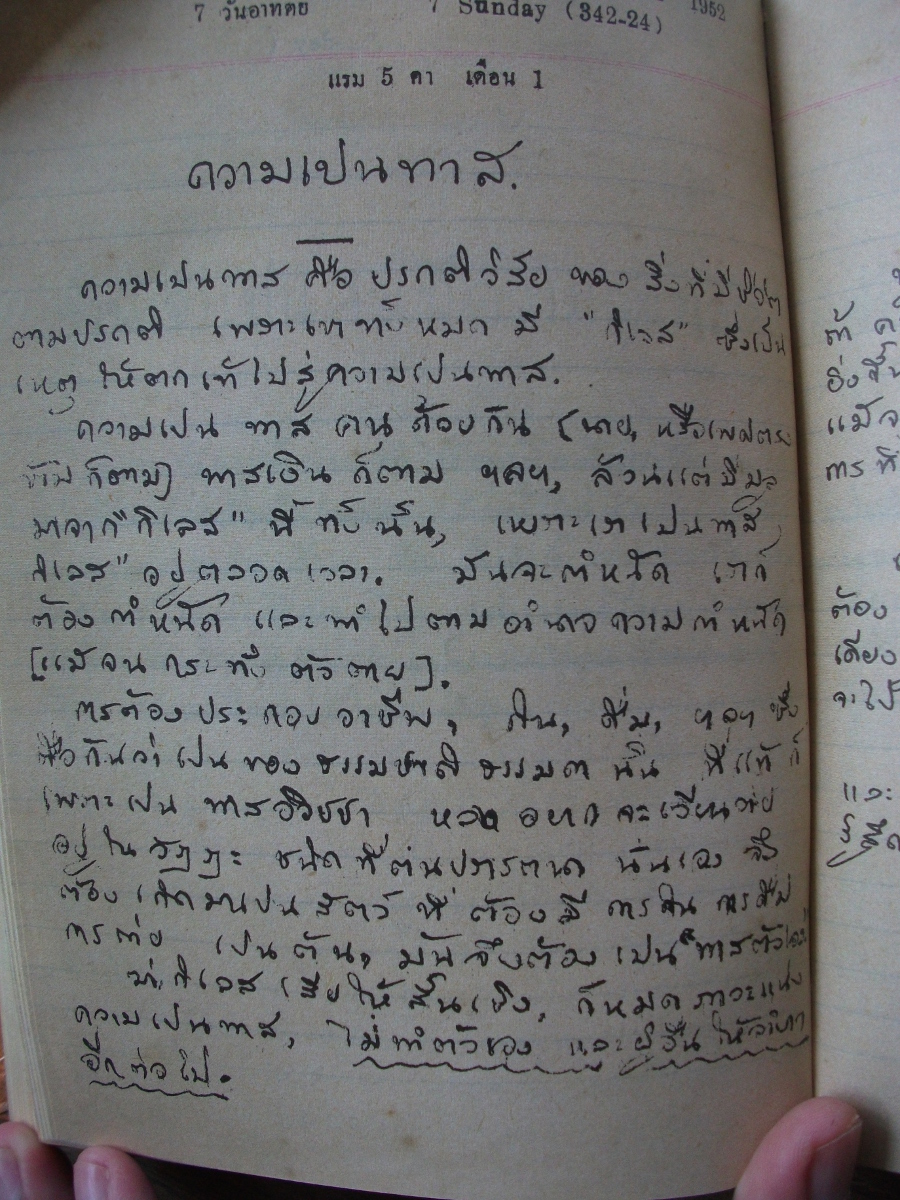 7 วันอาทตย 7 Sunday (342-24) 1952
แรม 5 คา เดือน 1
ความเป็นทาส.
ความเป็นทาส คือ ปรกติวิสัย ของ สิ่งที่มีชีวิต
ตามปรกติ เพราะเขาทั้งหมด มี "กิเลส" ซึ่งเป็น
เหตุ ให้ตกเข้าไปสู่ความเป็นทาส.
ความเป็น ทาส คน ด้วยกัน (นาย, หรือเพศตรง
ข้าม ก็ตาม) ทาสเงิน ก็ตาม ฯลฯ, ล้วนแต่มีมูล
มาจาก "กิเลส" นี้ ทั้งนั้น, เพราะเราเป็นทาส
กิเลส" อยู่ตลอดเวลา. มันจะกำหนัด เราก็
ต้องกำหนัด และทำไปตามอำนาจความกำหนัด
[แม้จน กระทั่ง ตัวตาย].
การต้องประกอบอาชีพ, กิน, ดื่ม, ฯลฯ ซึ่ง
ถือกันว่าเป็นของธรรมชาติธรรมดา นั้น ที่แท้ก็
เพราะเป็น ทาสอวิชชา หลง อยากจะเวียนว่าย
อยู่ในวัฏฏะ ชนิดที่ตนปรารถนา นั่นเอง จึง
ต้องเกิดมาเป็น สัตว์ ที่ ต้องมี การกิน การดื่ม
การ เป็นต้น, มันจึงต้อง เป็นทาสตัวเอง
ฆ่ากิเลสเสียให้สิ้นเชิง, ก็หมดภาวะแห่ง
ความเป็นทาส, ไม่ทำตัวเอง และผู้อื่น ให้ลำบาก
อีกต่อไป.
ต้อง
เดียง
จะไป
และ